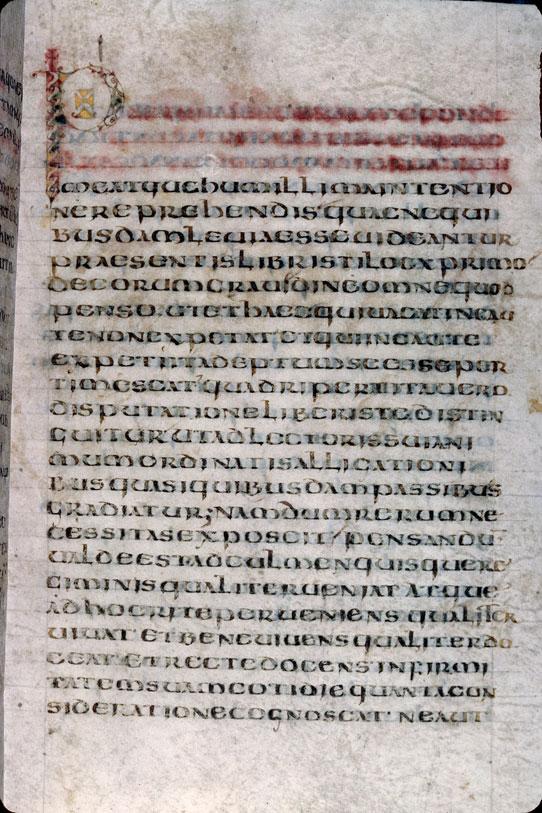 P
ME ATQUE HUMILLIMA INTENTIO
NE REPREHENDIS QUAE NE QUI
BUSDAM LEUIA ESSE UIDEANTUR
PRAESENTIS LIBRI STILO EXPRIMO
DE EORUM GRAUIDINE OMNE QUOD
PENSO. UT ET HAEC QUI UACAT INCAU
TE NON EXPETAT ET QUI INCAUTE
EXPETIIT ADEPTUM SE ESSE PER
TIMESCAT QUADRIPERTITA UERO
DISPUTATIONE LIBER ISTE DISTIN
GUITUR UT AD LECTORIS SUI ANI
MUM ORDINATIS ALLICATIONI
BUS QUASI QUIBUSDAM PASSIBUS
GRADIATUR; NAM DUM RERUM NE
CESSITAS EXPOSCIT PENSANDŪ
UALDE EST AD CULMEN QUISQUE RE
GIMINIS QUALITER UENIAT ATQUE
AD HOC RITE PERUENIENS QUALITER
UIUAT ET BENE UIUENS QUALITER DO
CEAT ET RECTE DOCENS INFIRMI
TATEM SUAM COTIDIE QUANTA CON
SIDERATIONE COGNOSCAT NE AUT